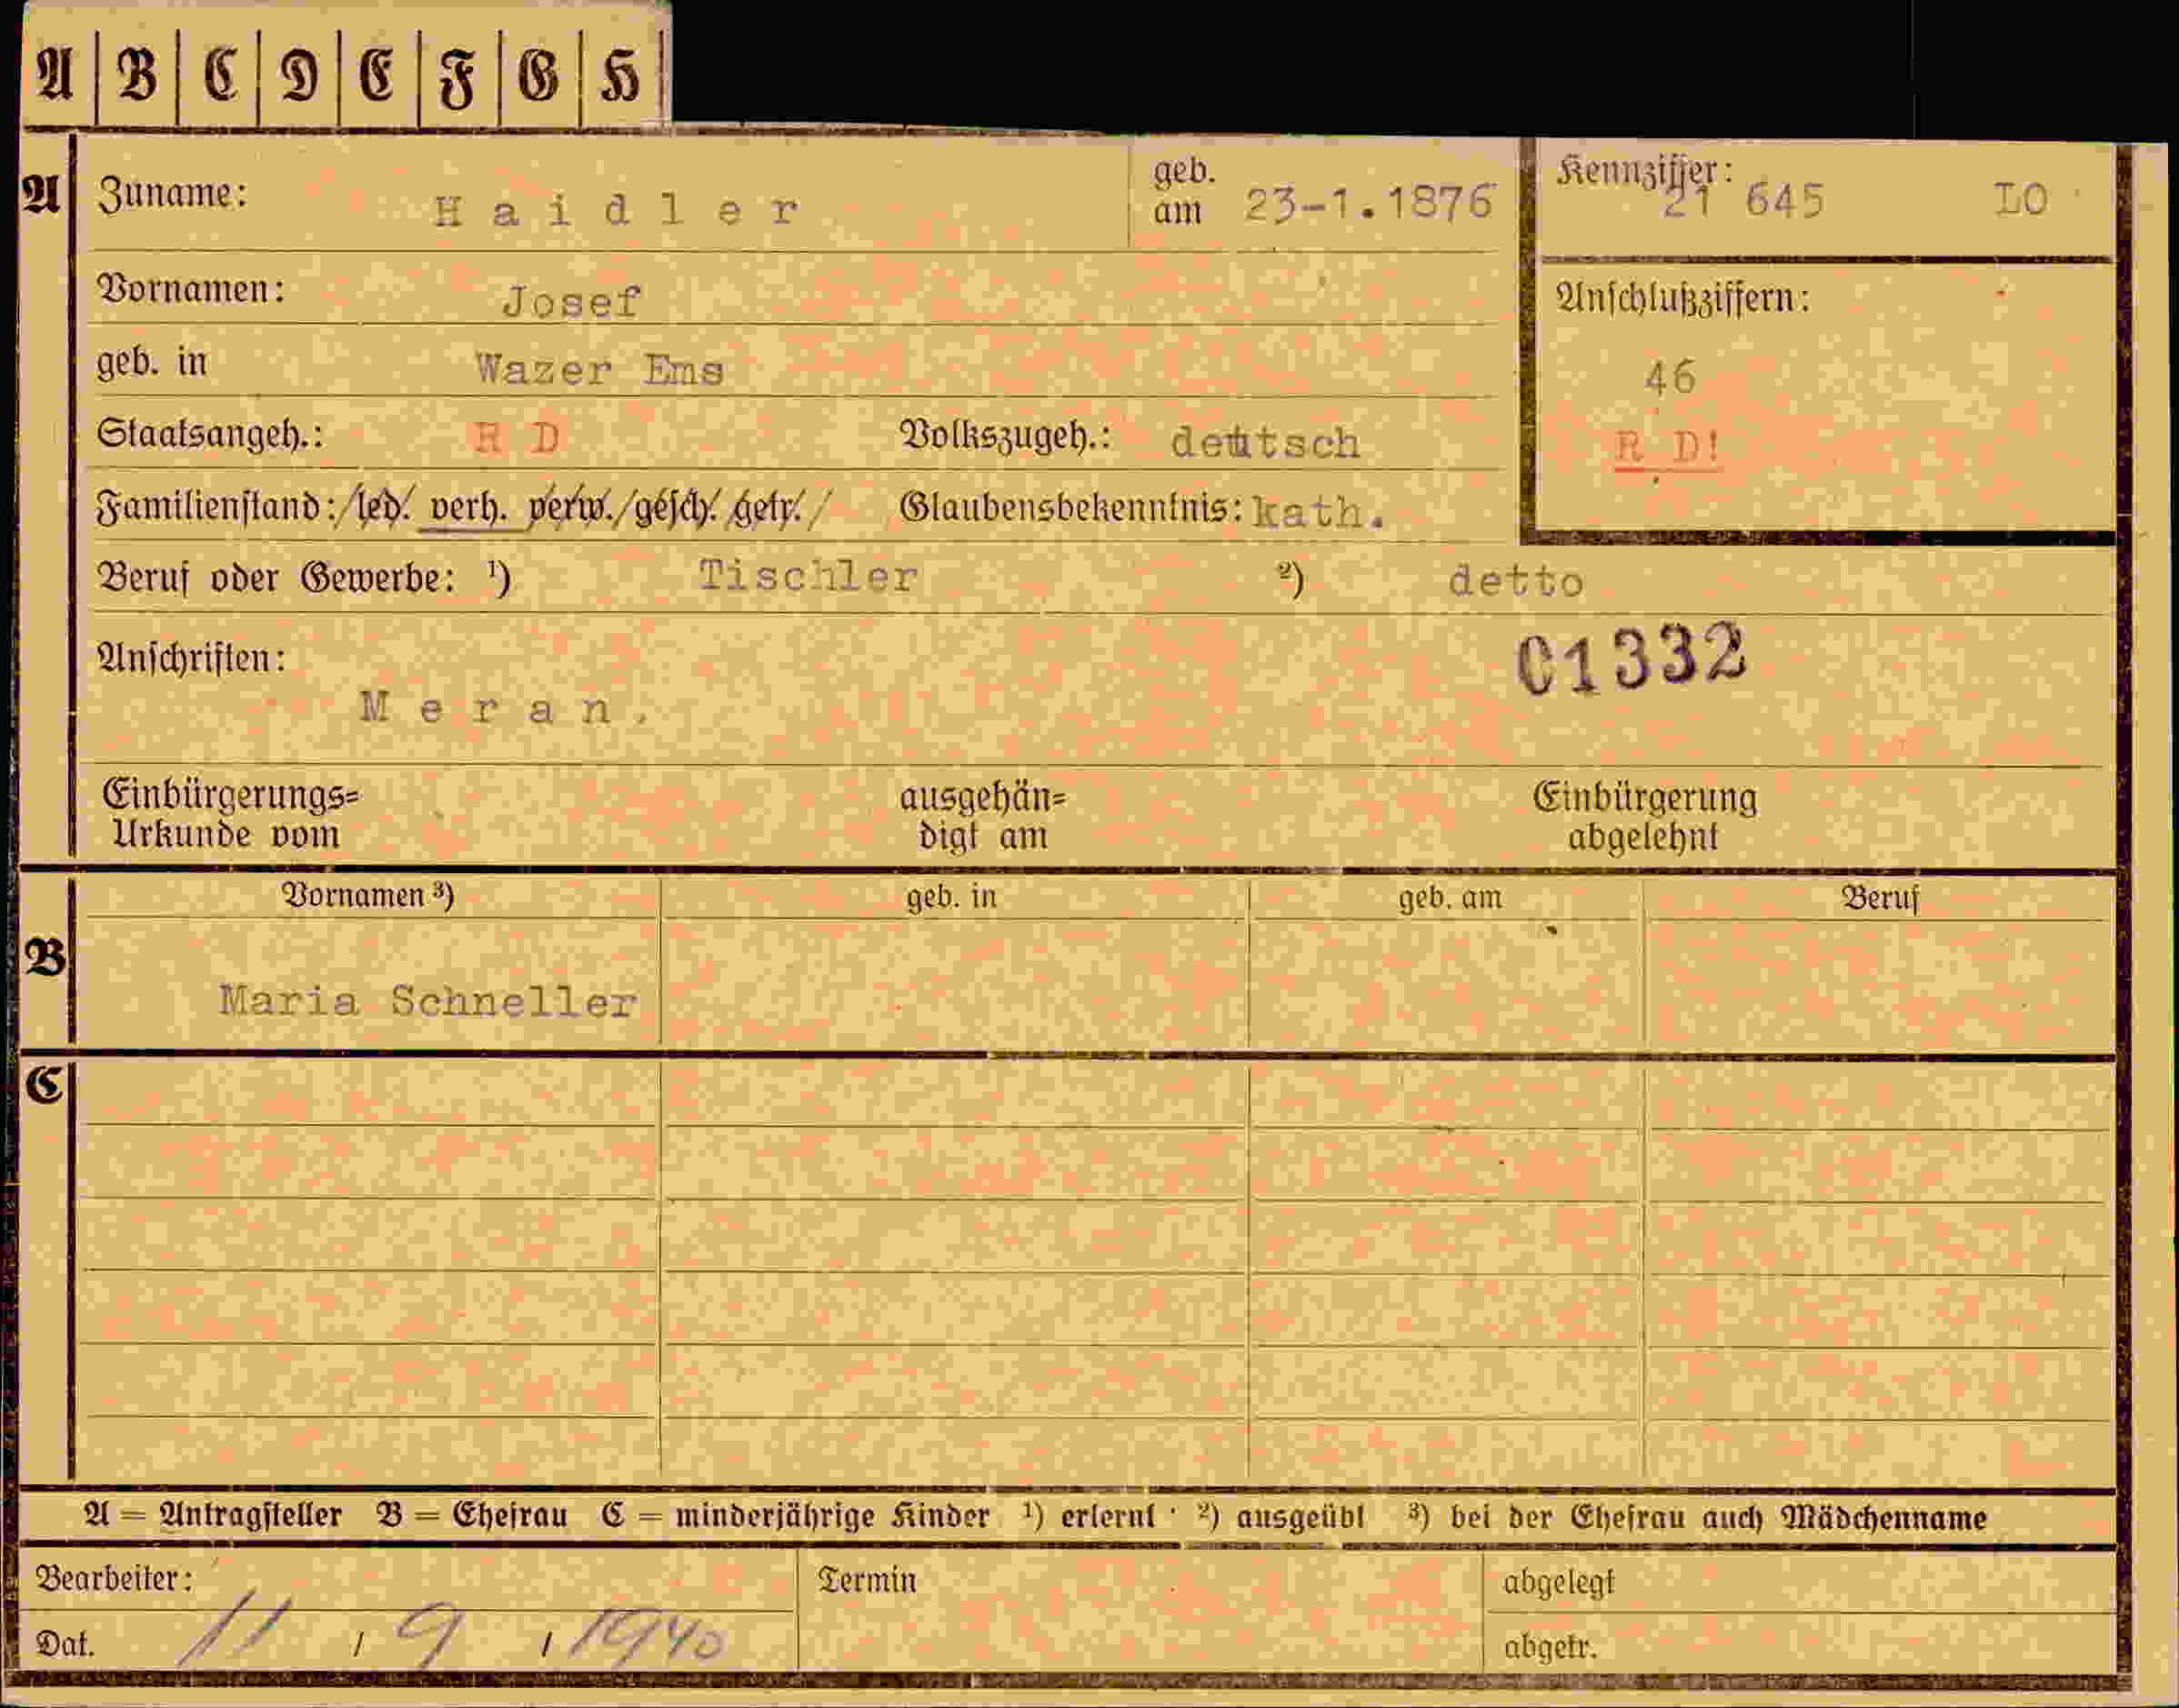 A B C D E F G H
A Zuname: Haidler geb. am 23-1.1876 Kennziffer: 21 645 LO
Vornamen: Josef Anschlußziffern:
geb. in Wazer Ems 46
Staatsangeh.: R D Volkszugeh.: deutsch R D!
Familienstand: led. verh. verw. gesch. getr. Glaubensbekenntnis: kath.
Beruf oder Gewerbe: ¹) Tischler ²) detto
Anschriften: C1332
Meran.
Einbürgerungs= ausgehän= Einbürgerung
Urkunde vom digt am abgelehnt
Vornamen ³) geb. in geb. am Beruf
B
Maria Schneller
C
A = Antragsteller B = Ehefrau C = minderjährige Kinder ¹) erlernt ²) ausgeübt ³) bei der Ehefrau auch Mädchenname
Bearbeiter: Termin abgelegt
Dat. 11 / 9 / 1940 abgetr.